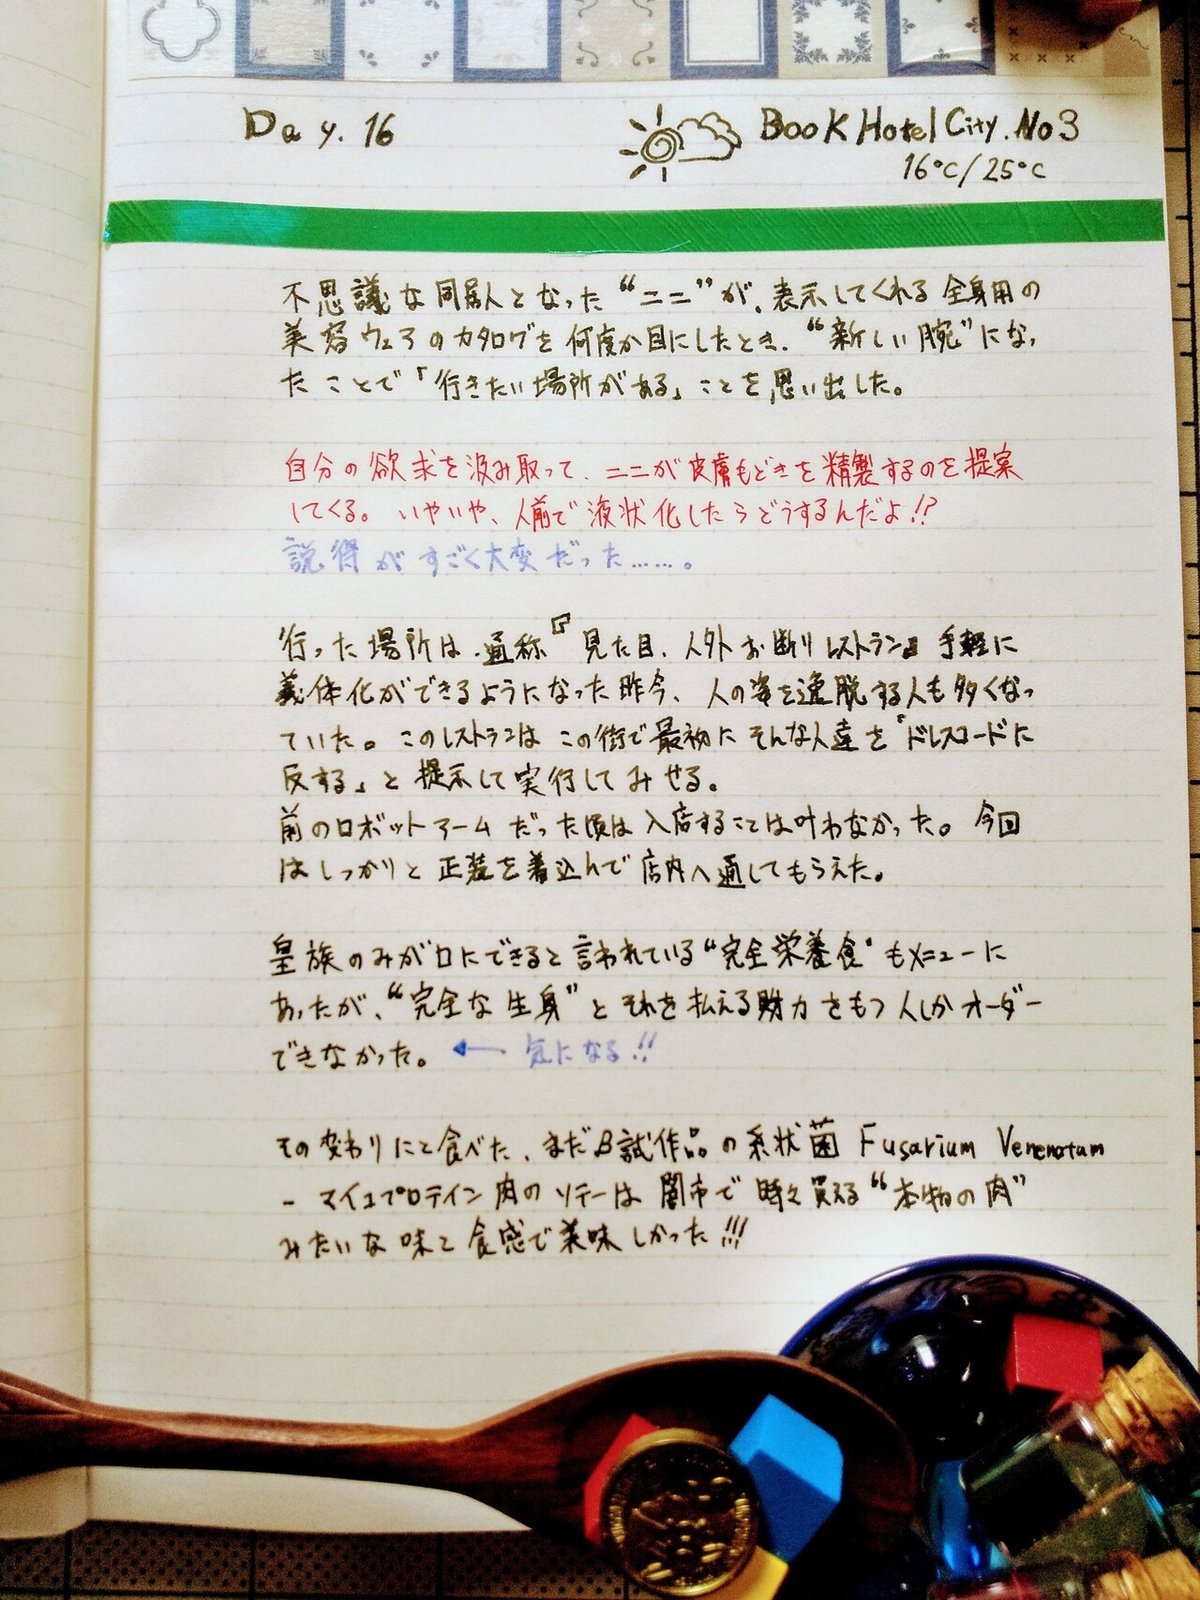 Day. 16
Book Hotel City. No3
16°C/25°C
不思議な同居人となった“ニニ”が、表示してくれる全身用の
美容ウェアのカタログを何度か目にしたとき、“新しい腕”になっ
たことで「行きたい場所がある」ことを思い出した。
自分の欲求を汲み取って、ニニが皮膚もどきを精製するのを提案
してくる。いやいや、人前で液状化したらどうするんだよ!?
説得がすごく大変だった……。
行った場所は、通称『見た目、人外お断りレストラン』手軽に
義体化ができるようになった昨今、人の姿を逸脱する人も多くなっ
ていた。このレストランはこの街で最初にそんな人達を「ドレスコードに
反する」と提示して実行してみせる。
前のロボットアームだった頃は入店することは叶わなかった。今回
はしっかりと正装を着込んで店内へ通してもらえた。
皇族のみが口にできると言われている“完全栄養食”もメニューに
あったが、“完全な生身”とそれを払える財力をもつ人しかオーダー
できなかった。← 気になる!!
その変わりにと食べた、まだβ試作品の糸状菌 Fusarium Venenatum
- マイコプロテイン肉のソテーは闇市で時々買える“本物の肉”
みたいな味と食感で美味しかった!!!